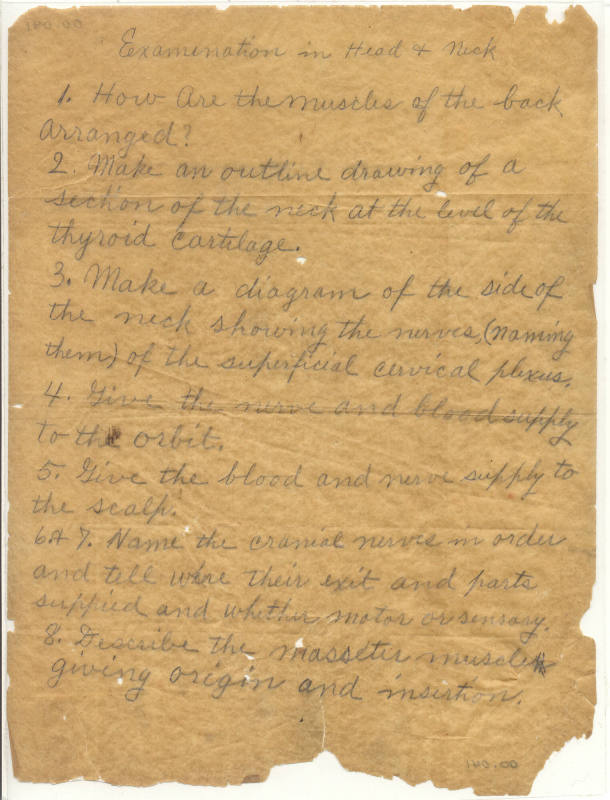 Examenation in Head & Neck
1. How Are the muscles of the back
arranged?
2. Make an outline drawing of a
section of the neck at the level of the
thyroid cartilage.
3. Make a diagram of the side of
the neck showing the nerves, (naming
them) of the superficial cervical plexus.
4. Give the nerve and blood supply
to the orbit.
5. Give the blood and nerve supply to
the scalp.
6 & 7. Name the cranial nerves in order
and tell were their exit and parts
suppied and whether motor or sensory.
8. Describe the masseter muscle
giving origin and insertion.
00.041